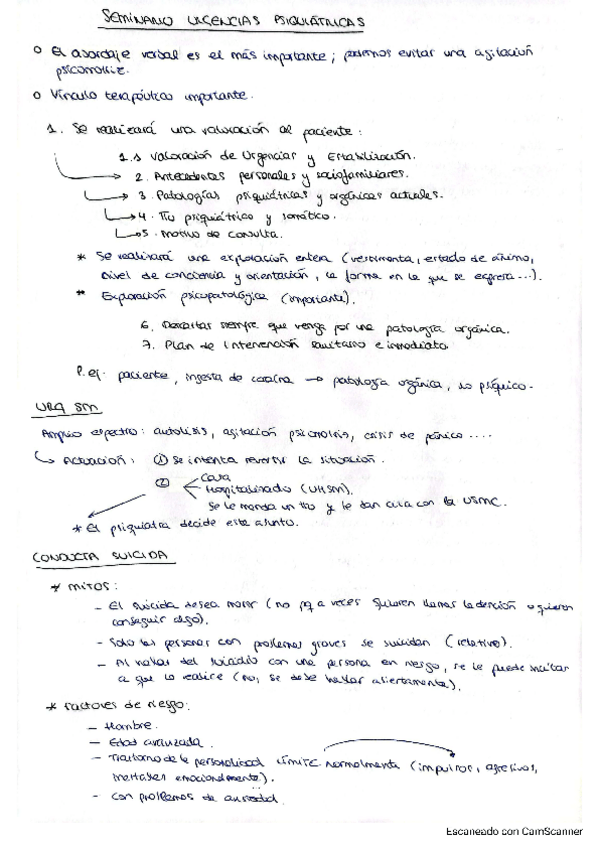 SEMINARIO URGENCIAS PSIQUIÁTRICAS
o El abordaje verbal es el más importante; podemos evitar una agitación
psicomotriz.
o Vínculo terapéutico importante.
1. Se realizará una valoración al paciente:
1.1 Valoración de Urgencias y Estabilización.
2. Antecedentes personales y sociofamiliares.
3. Patologías psiquiátricas y orgánicas actuales.
4. Tto psiquiátrico y somático.
5. Motivo de consulta.
* Se realizará una exploración entera (vestimenta, estado de ánimo,
nivel de conciencia y orientación, la forma en la que se expresa...).
* Exploración psicopatológica (importante).
6. Descartar siempre que venga por una patología orgánica.
7. Plan de Intervención sanitario e inmediato
P.ej. paciente, ingesta de cocaína → patología orgánica, no psíquico.
URG SM
Amplio espectro: autolisis, agitación psicomotriz, crisis de pánico ....
↳ Actuación: ① Se intenta revertir la situación.
② Casa
Hospitalizado (UHSM).
Se le manda un tto y le dan cita con la USMC.
* El psiquiatra decide este asunto.
CONDUCTA SUICIDA
* Mitos:
- El suicida desea morir (no pq a veces quieren llamar la atención o quieren
conseguir algo).
- Solo las personas con problemas graves se suicidan (relativo).
- Al hablar del suicidio con una persona en riesgo, se le puede incitar
a que lo realice (no, se debe hablar abiertamente).
* Factores de riesgo:
- Hombre.
- Edad avanzada.
- Trastorno de la personalidad límite normalmente (impulsos, agresivos,
inestables emocionalmente).
- Con problemas de ansiedad.
Escaneado con CamScanner